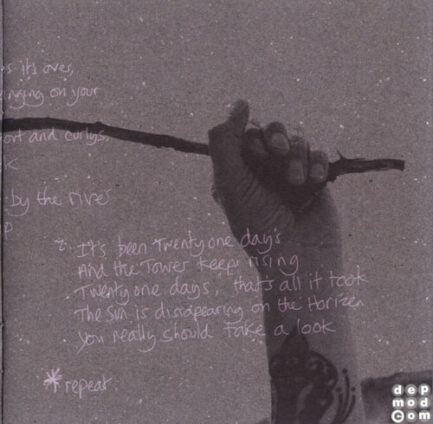 s its over,
inging on your
ort and curlys,
k
by the river
p
2. It's been Twenty one day's
And the Tower keeps rising
Twenty one days, that's all it took
The Sun is dissapearing on the Horizen
You really should take a look
* repeat.
dep
mod
Com